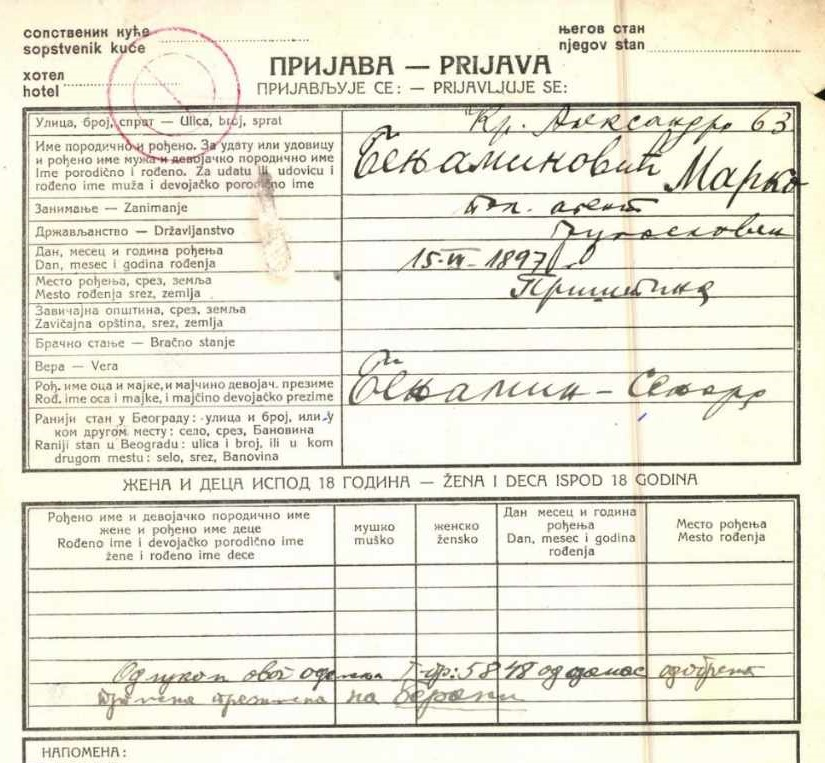 сопственик куће
sopstvenik kuće
његов стан
njegov stan
хотел
hotel
ПРИЈАВА — PRIJAVA
ПРИЈАВЉУЈЕ СЕ: — PRIJAVLJUJE SE:
Улица, број, спрат — Ulica, broj, sprat
Кр. Александра 63
Име породично и рођено. За удату или удовицу
и рођено име мужа и девојачко породично име
Ime porodično i rođeno. Za udatu ili udovicu i
rođeno ime muža i devojačko porodično ime
Бењаминовић Марко
Занимање — Zanimanje
агент
Држављанство — Državljanstvo
Југословен
Дан, месец и година рођења
Dan, mesec i godina rođenja
15-VI-1897
Место рођења, срез, земља
Mesto rođenja srez, zemlja
Приштина
Завичајна општина, срез, земља
Zavičajna opština, srez, zemlja
Брачно стање — Bračno stanje
Вера — Vera
Рођ. име оца и мајке, и мајчино девојач. презиме
Rođ. ime oca i majke, i majčino devojačko prezime
Бењамин —
Ранији стан у Београду: улица и број, или у
ком другом месту: село, срез, Бановина
Raniji stan u Beogradu: ulica i broj, ili u kom
drugom mestu: selo, srez, Banovina
ЖЕНА И ДЕЦА ИСПОД 18 ГОДИНА — ŽENA I DECA ISPOD 18 GODINA
Рођено име и девојачко породично име
жене и рођено име деце
Rođeno ime i devojačko porodično ime
žene i rođeno ime dece
мушко
muško
женско
žensko
Дан месец и година
рођења
Dan, mesec i godina
rođenja
Место рођења
Mesto rođenja
Одлуком овог бр: 5848 од данас
на
НАПОМЕНА: